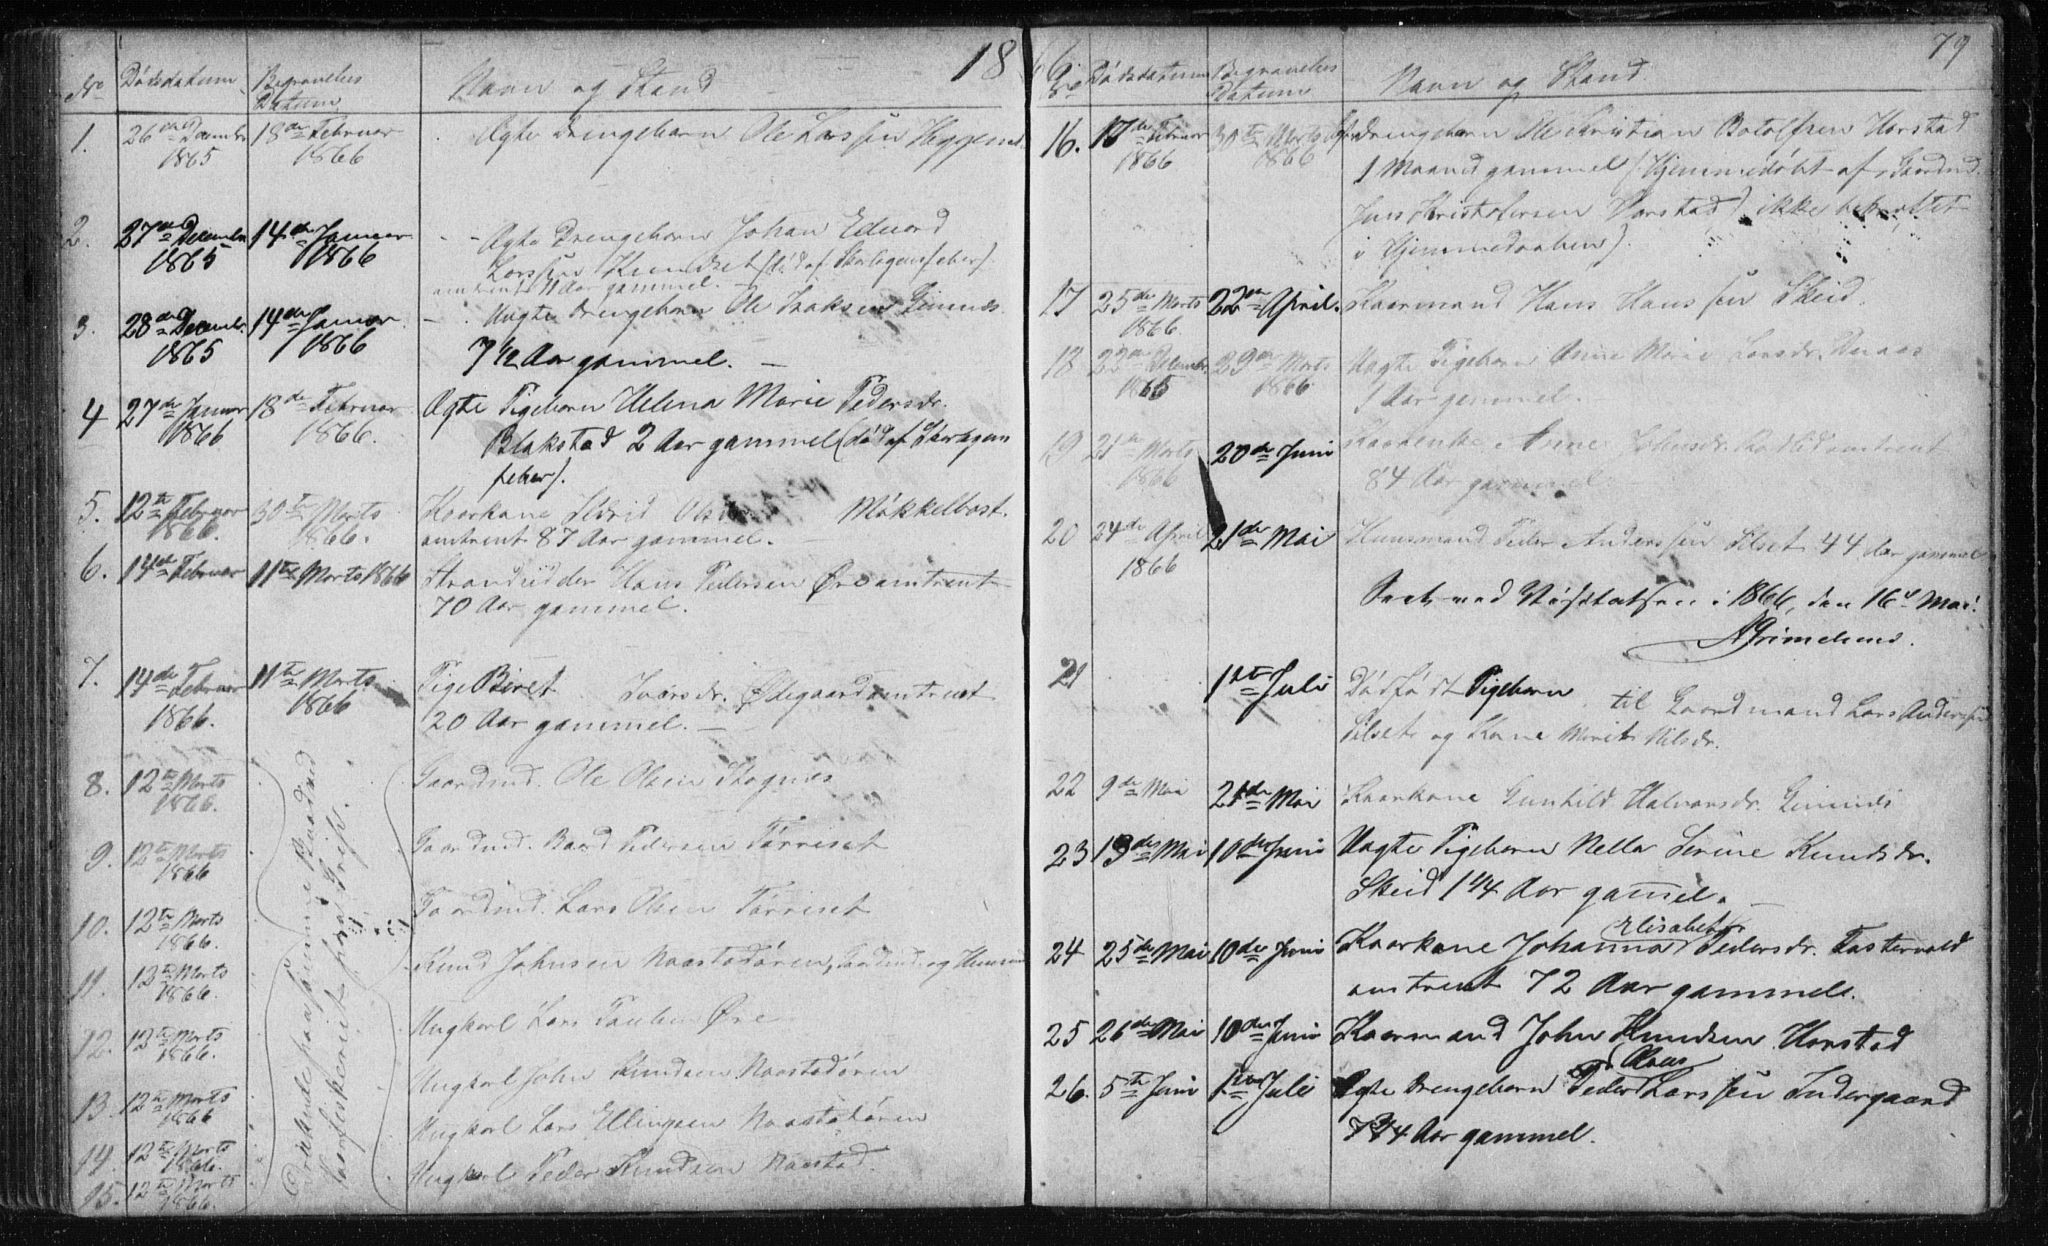 1866
79
No Dødsdatum Begravelses Datum Navn og Stand
1. 26de Decembr 1865 18de Februar 1866 Ægte Drengebarn Ole Larssen
2. 27de Decembr 1865 14de Januar 1866 Ægte Drengebarn Johan Eduard
Larssen (død af Skarlagensfeber)
omtrent Aar gammel.
3. 28de Decembr. 1865 14de Januar 1866 Uægte Drengebarn Ole Isaksen
7 1/2 Aar gammel.
4 27de Januar 1866 18de Februar 1866. Ægte Pigebarn Helena Marie Pedersdr.
Blakstad 2 Aar gammel (død af Skarlagens
feber).
5. 12te Februar 1866. 30te Marts 1866. Kaarkone Ildrid Olsdr Møkkelbost.
omtrent 87 Aar gammel.
6. 14de Februar 11te Marts 1866 Strandsidder Hans Pedersen Øre omtrent
70 Aar gammel.
7. 14de Februar 1866. 11te Marts 1866 Pige Beret Ivarsdr. Ødegaard omtrent
20 Aar gammel.
8. 12te Marts 1866. Gaardmd. Ole Olsen
9. 12te Marts 1866 Gaardmd. Baard Pedersen Tørriset
10. 12te Marts 1866. Gaardmd. Lars Olsen Tørriset
11. 12te Marts 1866. Knud Johnsen Naastadøren,
12. 12te Marts 1866. Ungkarl Lars Øre
13. 12te Marts 1866 Ungkarl John Knudsen Naastadøren
14. 12te Marts 1866. Ungkarl Lars Ellingsen Naastadøren
15. 12te Marts 1866. Ungkarl Peder Knudsen Naastad.
Druknede paa samme Baad ved
Vaarfiskeriet fra Grip.
No Dødsdatum Begravelses Datum Navn og Stand
16. 17de Februar 1866 30te Marts 1866 Drengebarn Ole Kristian Botolfsen Harstad
1 Maaned gammel (Hjemmedøbt af Gaardmd.
Jens Kristofersen Harstad) ikke bekræftet
i Hjemmedaaben).
17 25de Marts 1866. 22de April. Kaarmand Hans Hanssen Skeid.
18 22de Decembr. 1865 29de Marts 1866 Uægte Pigebarn Anne Marie Larsdr.
1 Aar gammel.
19 21de Marts 1866 20de Juni Kaarenke Anne omtrent
84 Aar gammel.
20 24de April 1866 21de Mai Huusmand Peder Anderssen Silset 44 Aar gammel
Seet ved Visitatsen i 1866, den 16de Mai.
AGrimelund.
21 1ste Juli Dødfødt Pigebarn til Gaardmand Lars Anderssen
Silset og Kone Marit Nilsdr.
22 9de Mai 21de Mai Kaarkone Gunhild Halvorsdr.
23 13de Mai 10de Juni Uægte Pigebarn Nella Serine Knudsdr.
Skeid 1 1/4 Aar gammel.
24 25de Mai 10de Juni Kaarkone Johanna Elisabeth Pedersdr. Fostervold
omtrent 72 Aar gammel.
25 26de Mai 10de Juni Kaarmand John Knudsen Harstad
26. 5te Juni 1ste Juli Ægte Drengebarn Peder Larssen Indergaard
Aar gammel.